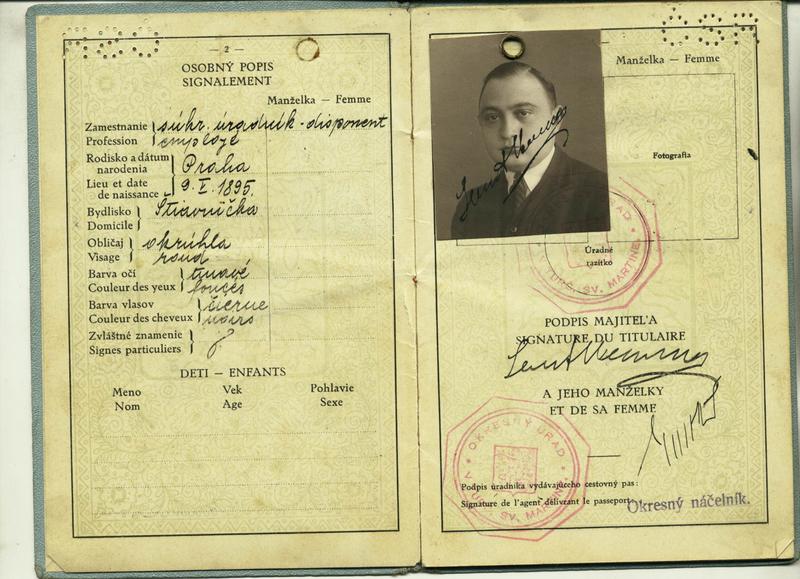 — 2 —
OSOBNÝ POPIS
SIGNALEMENT
Manželka — Femme
Zamestnanie súkr. úradník - disponent
Profession employé
Rodisko a dátum narodenia Praha
Lieu et date de naissance 9. I. 1895.
Bydlisko Štiavnička
Domicile
Obličaj okrúhla
Visage rond
Barva očí tmavé
Couleur des yeux foncés
Barva vlasov čierne
Couleur des cheveux noirs
Zvláštné znamenie
Signes particuliers
DETI — ENFANTS
Meno Vek Pohlavie
Nom Age Sexe
Manželka — Femme
Fotografia
Úradné
razítko
OKRESNÝ ÚRAD
SV. MARTINE
PODPIS MAJITEĽA
SIGNATURE DU TITULAIRE
A JEHO MANŽELKY
ET DE SA FEMME
OKRESNÝ ÚRAD
SV. MARTINE
Podpis úradníka vydávajúceho cestovný pas:
Signature de l'agent délivrant le passeport:
Okresný náčelník.